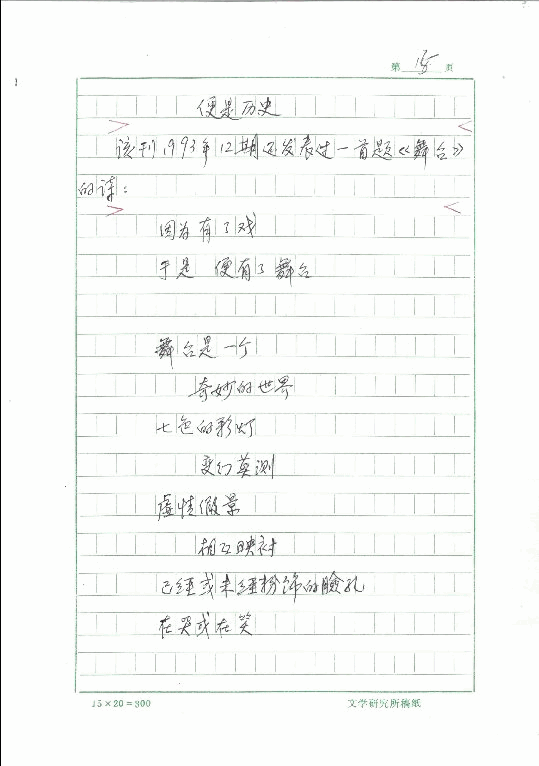 第 15 页
便是历史
该刊1993年12期还发表过一首题《舞台》
的诗：
因为有了戏
于是 便有了舞台
舞台是一个
奇妙的世界
七色的彩灯
变幻莫测
虚情假景
相互映衬
已经或未经粉饰的脸孔
在哭或在笑
15×20=300
文学研究所稿纸